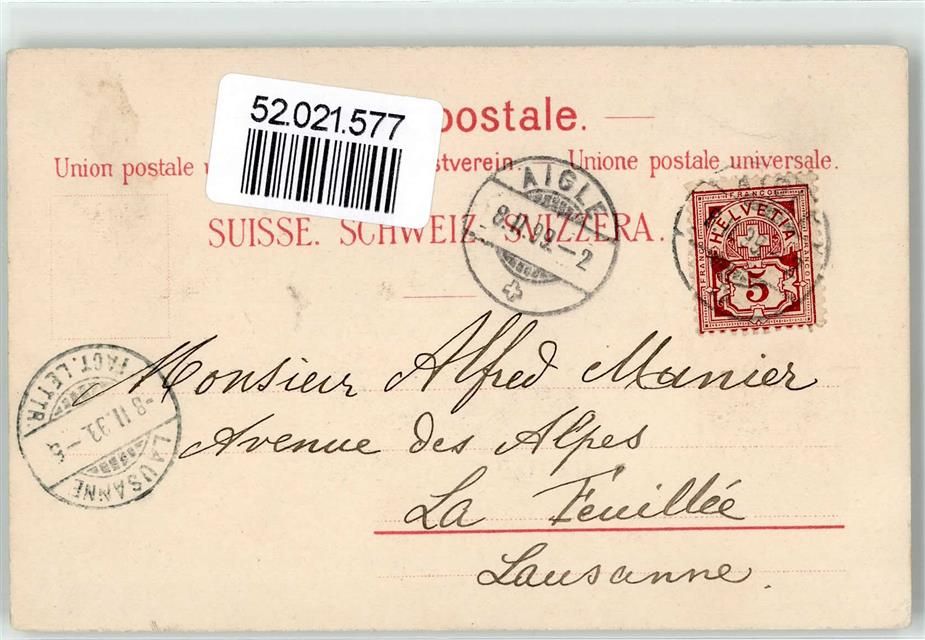 52.021.577
postale.
Union postale u stverein. — Unione postale universale.
SUISSE. SCHWEIZ. SVIZZERA.
AIGLE
8.II.99.-2
FRANCO
FRANCO
HELVETIA
5
Monsieur Alfred Manier
Avenue des Alpes
La Feuillée
Lausanne.
FACT. LETTR.
-8.II.99.-5
LAUSANNE